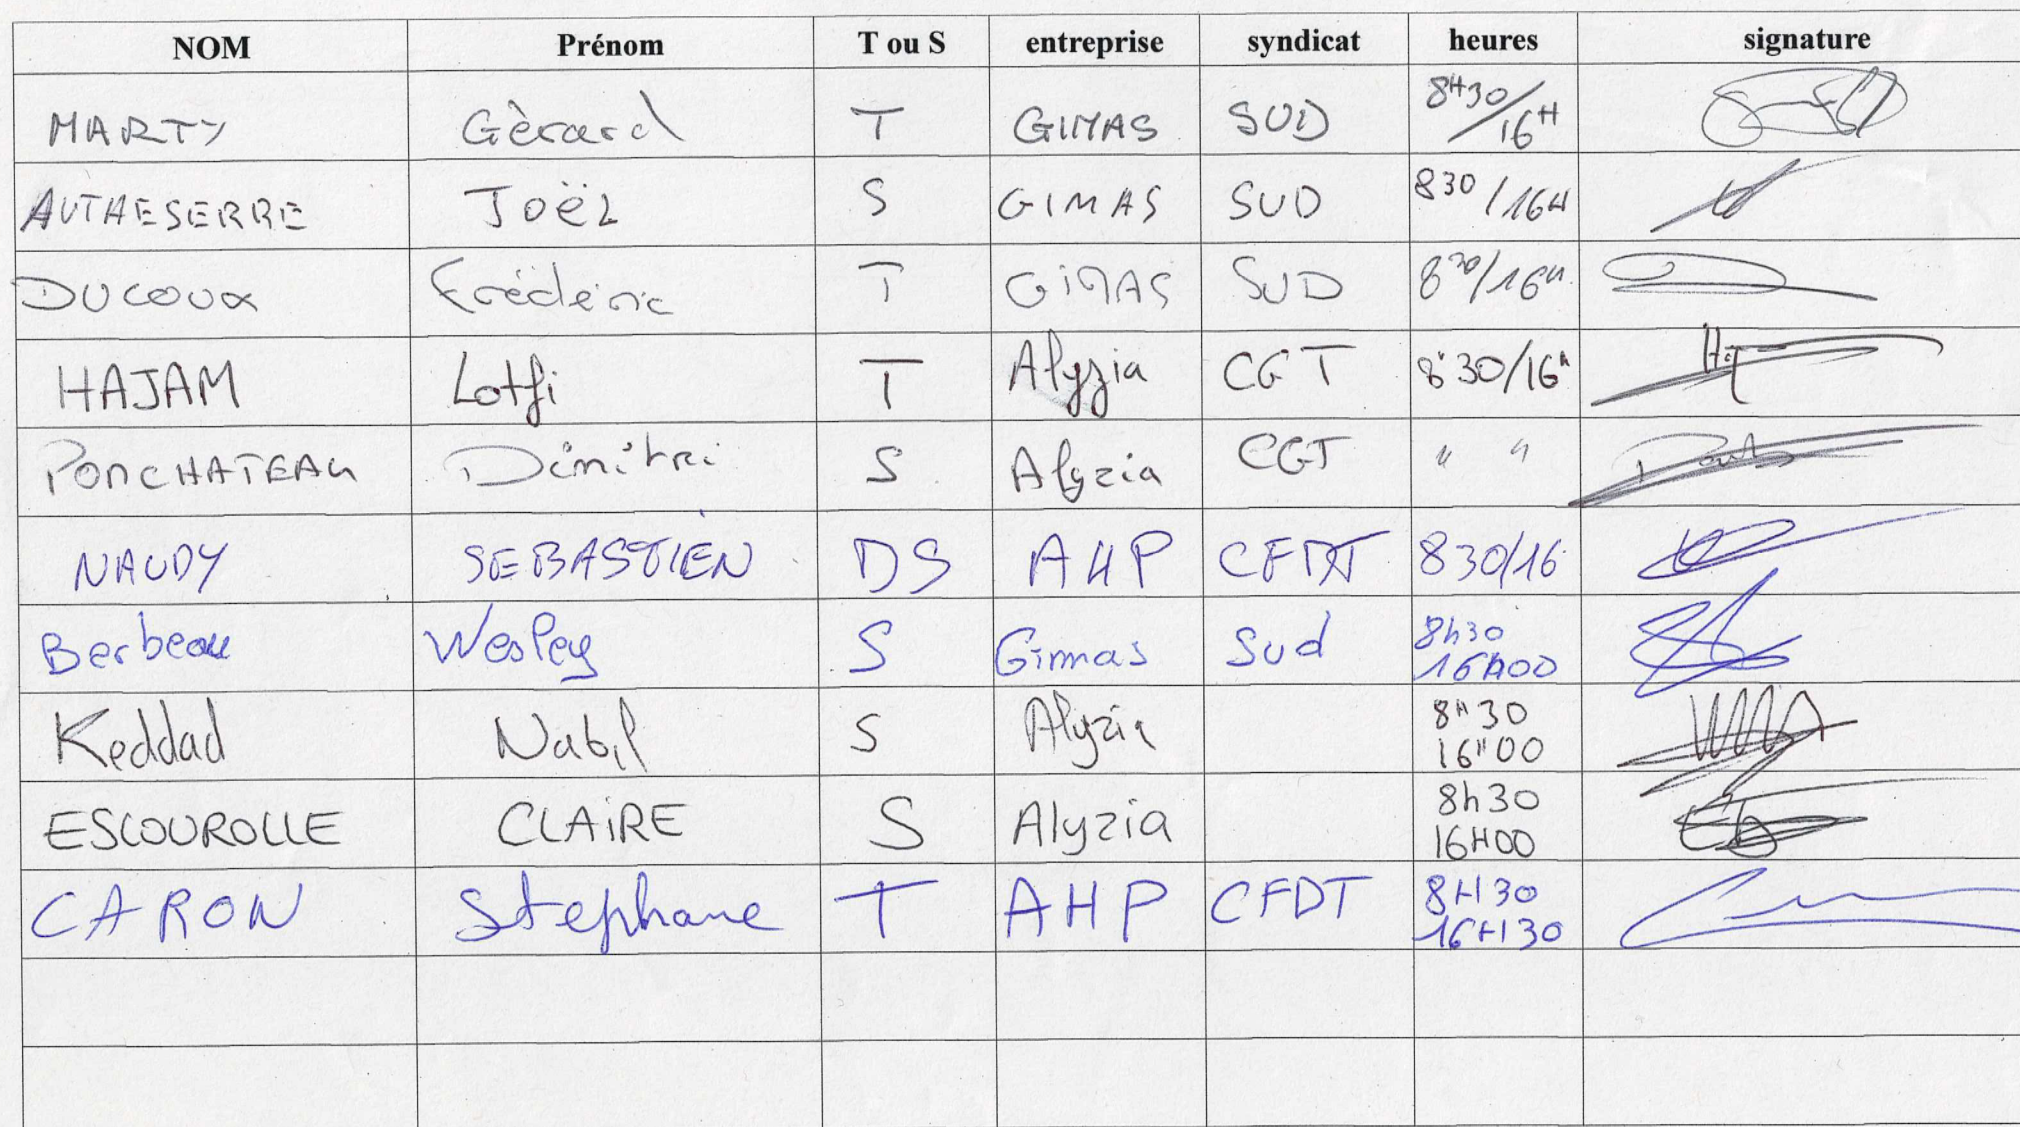 NOM Prénom T ou S entreprise syndicat heures signature
MARTY Gèrard T GIMAS SUD 8H30/16H
AUTHESERRE Joël S GIMAS SUD 830/16H
DUCOUX Frédéric T GiMAS SUD 830/16H
HAJAM Lotfi T Alyzia CGT 8h30/16h
PONCHATEAU Dimitri S Alyzia CGT " "
NAUDY SEBASTIEN DS AHP CFDT 830/16
Berbeau Wesley S Gimas Sud 8h30
16h00
Keddad Nabil S Alyzia 8H30
16H00
ESCOUROLLE CLAiRE S Alyzia 8h30
16H00
CARON Stephane T AHP CFDT 8H30
16H30